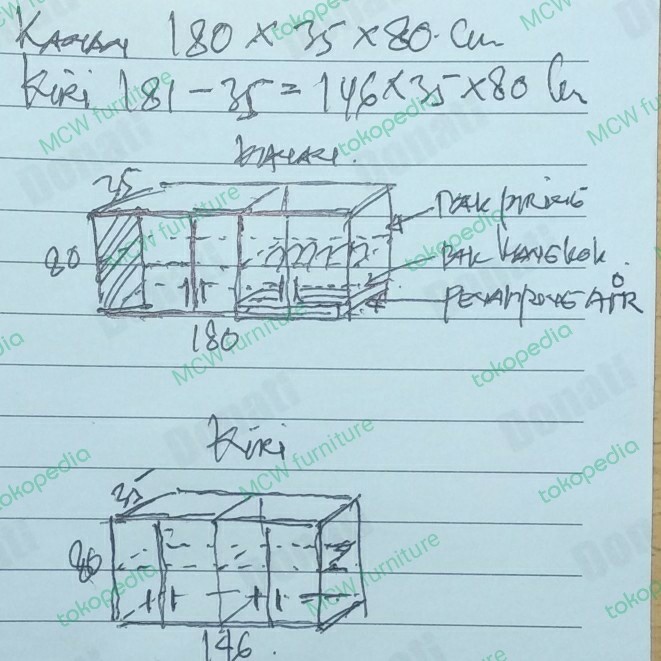 KANAN 180 X 35 X 80 Cm
KIRI 181 - 35 = 146 X 35 X 80 Cm
KANAN
35
80
RAK PIRING
RAK MANGKOK
PENAMPUNG AIR
180
KIRI
35
80
146
MCW furniture
tokopedia
Donati